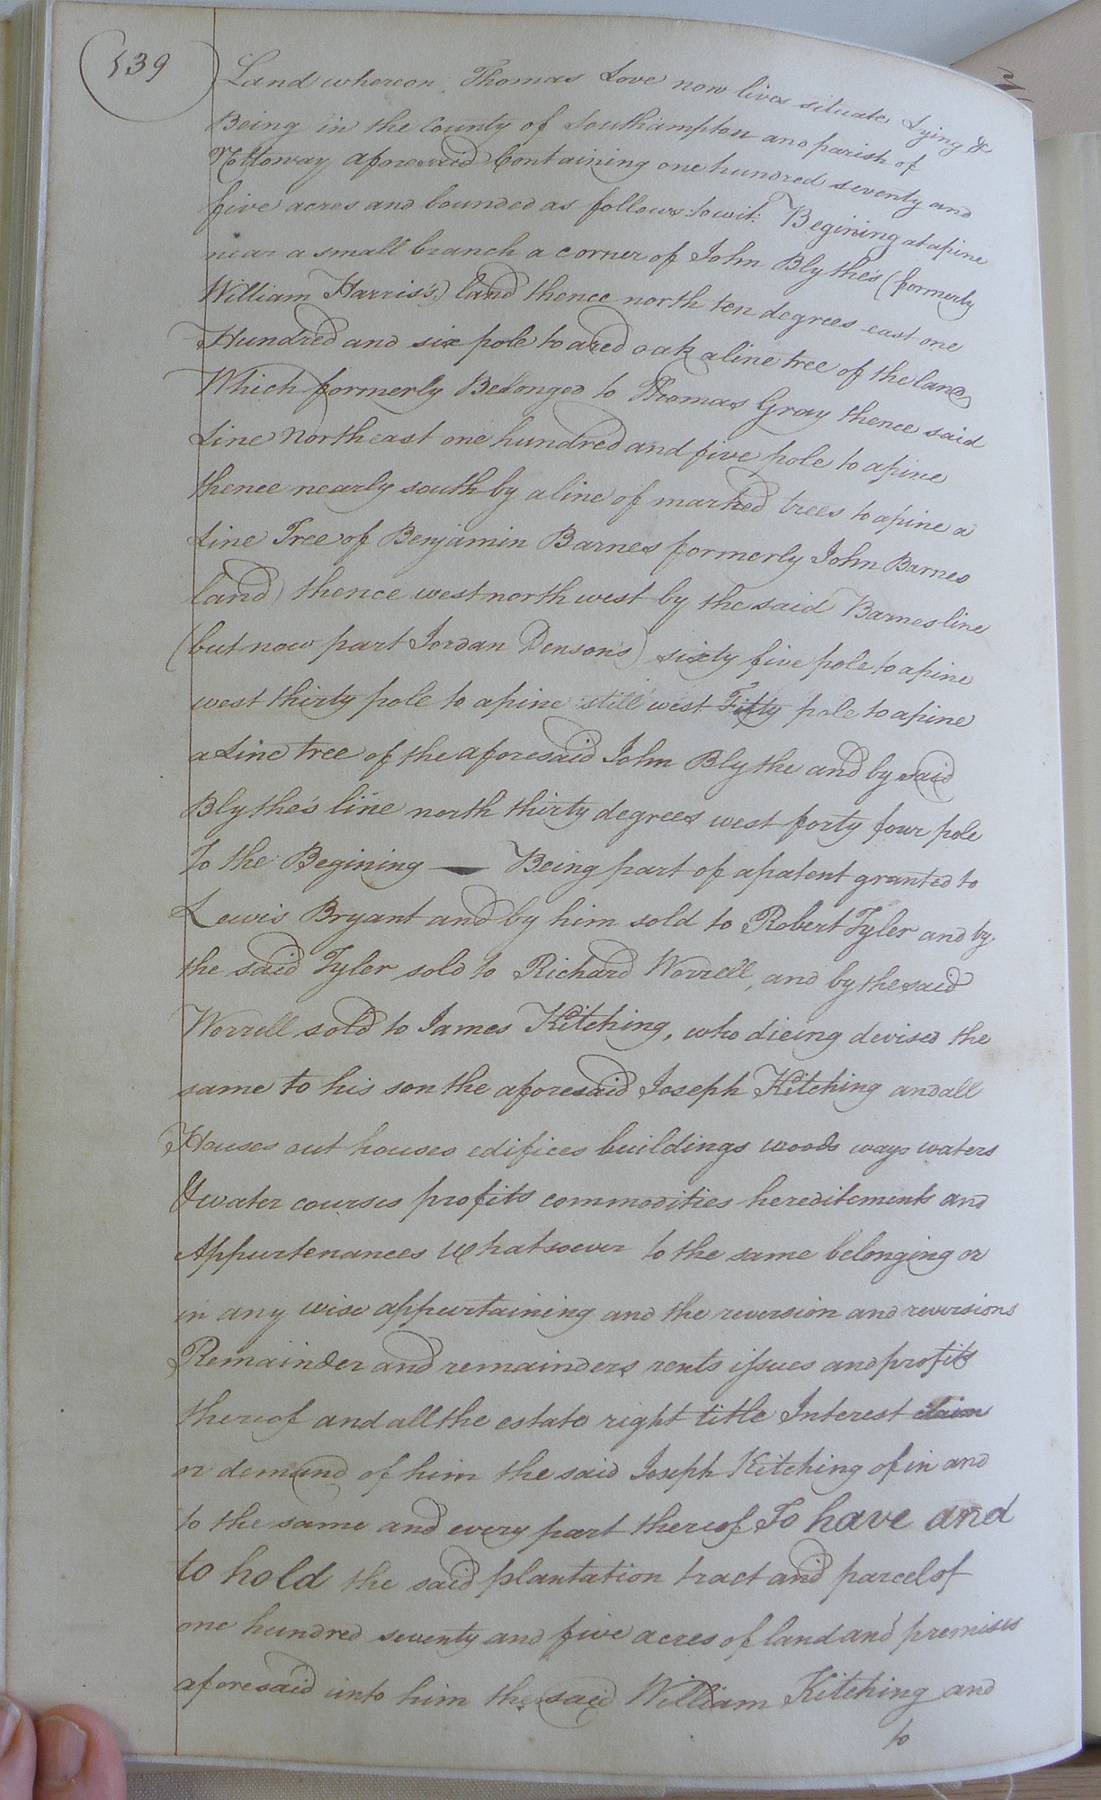 539
Land whereon Thomas Love now lives situate Lying &
Being in the County of Southampton and parish of
Nottoway aforesaid Containing one hundred seventy and
five acres and bounded as follows towit: Begining at a pine
near a small branch a corner of John Blythe's (formerly
William Harris's) land thence north ten degrees east one
Hundred and six pole to a red oak a line tree of the land
Which formerly Belonged to Thomas Gray thence said
Line North east one hundred and five pole to a pine
thence nearly south by a line of marked trees to a pine a
Line Tree of Benjamin Barnes formerly John Barnes
land) thence west north west by the said Barnes line
(but now part Jordan Denson's) sixty five pole to a pine
west thirty pole to a pine still west Fifty pole to a pine
a Line tree of the aforesaid John Blythe and by said
Blythe's line north thirty degrees west forty four pole
To the Begining — Being part of a patent granted to
Lewis Bryant and by him sold to Robert Tyler and by
the said Tyler sold to Richard Worrell, and by the said
Worrell sold to James Kitching, who dieing devised the
same to his son the aforesaid Joseph Kitching and all
Houses out houses edifices buildings woods ways waters
& water courses profits commodities hereditements and
Appurtenances whatsoever to the same belonging or
in any wise appurtaining and the reversion and reversions
Remainder and remainders rents issues and profits
thereof and all the estate right title Interest claim
or demand of him the said Joseph Kitching of in and
to the same and every part thereof To have and
to hold the said plantation tract and parcel of
one hundred seventy and five acres of land and premises
aforesaid unto him the said William Kitching and
to